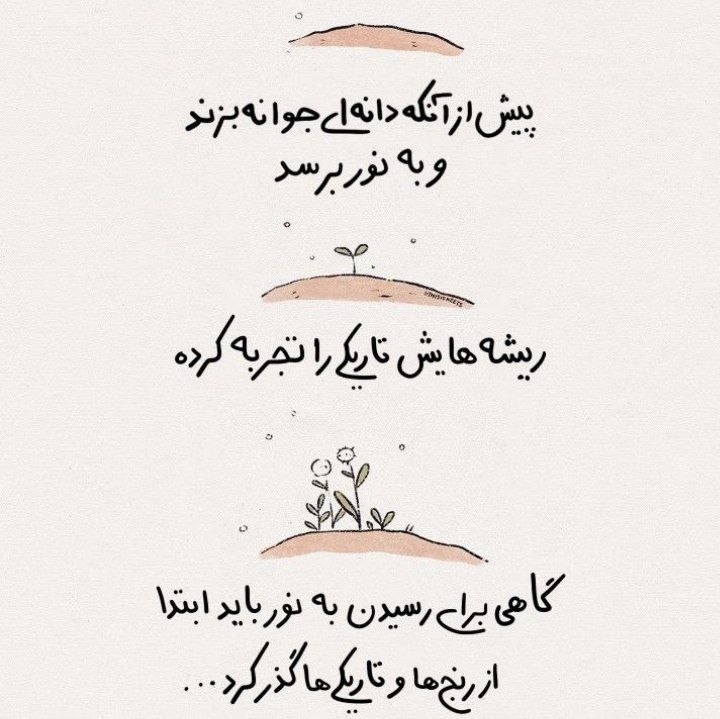 پیش از آنکه دانه‌ای جوانه بزند
و به نور برسد
ریشه هایش تاریکی را تجربه کرده
گاهی برای رسیدن به نور باید ابتدا
از رنج‌ها و تاریکی‌ها گذر کرد...